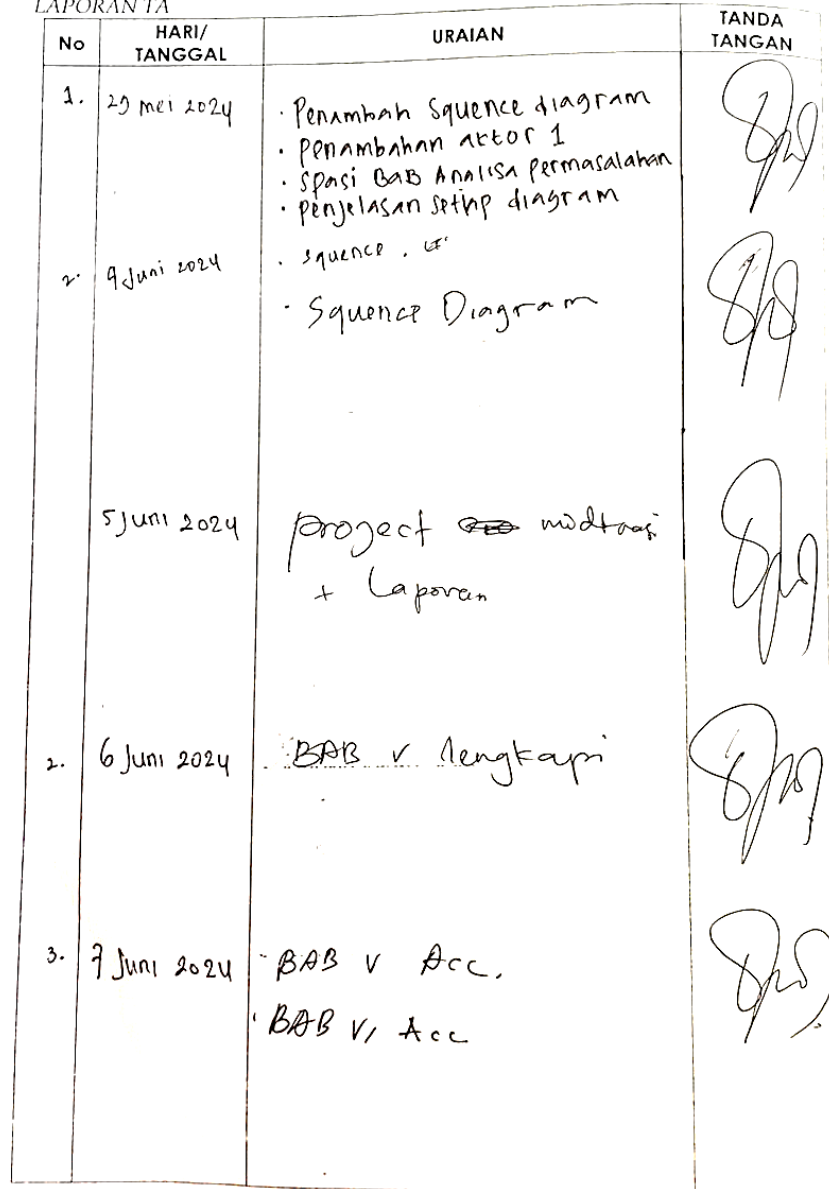 LAPORAN TA
No
HARI/
TANGGAL
URAIAN
TANDA
TANGAN
1. 29 mei 2024
· Penambah Squence diagram
· Penambahan aktor 1
· Spasi BAB Analisa Permasalahan
· Penjelasan setiap diagram
2. 9 Juni 2024
· squence .
· Squence Diagram
5 Juni 2024
project
+ Laporan
2. 6 Juni 2024
BAB V lengkapi
3. 7 Juni 2024
· BAB V Acc.
· BAB VI Acc